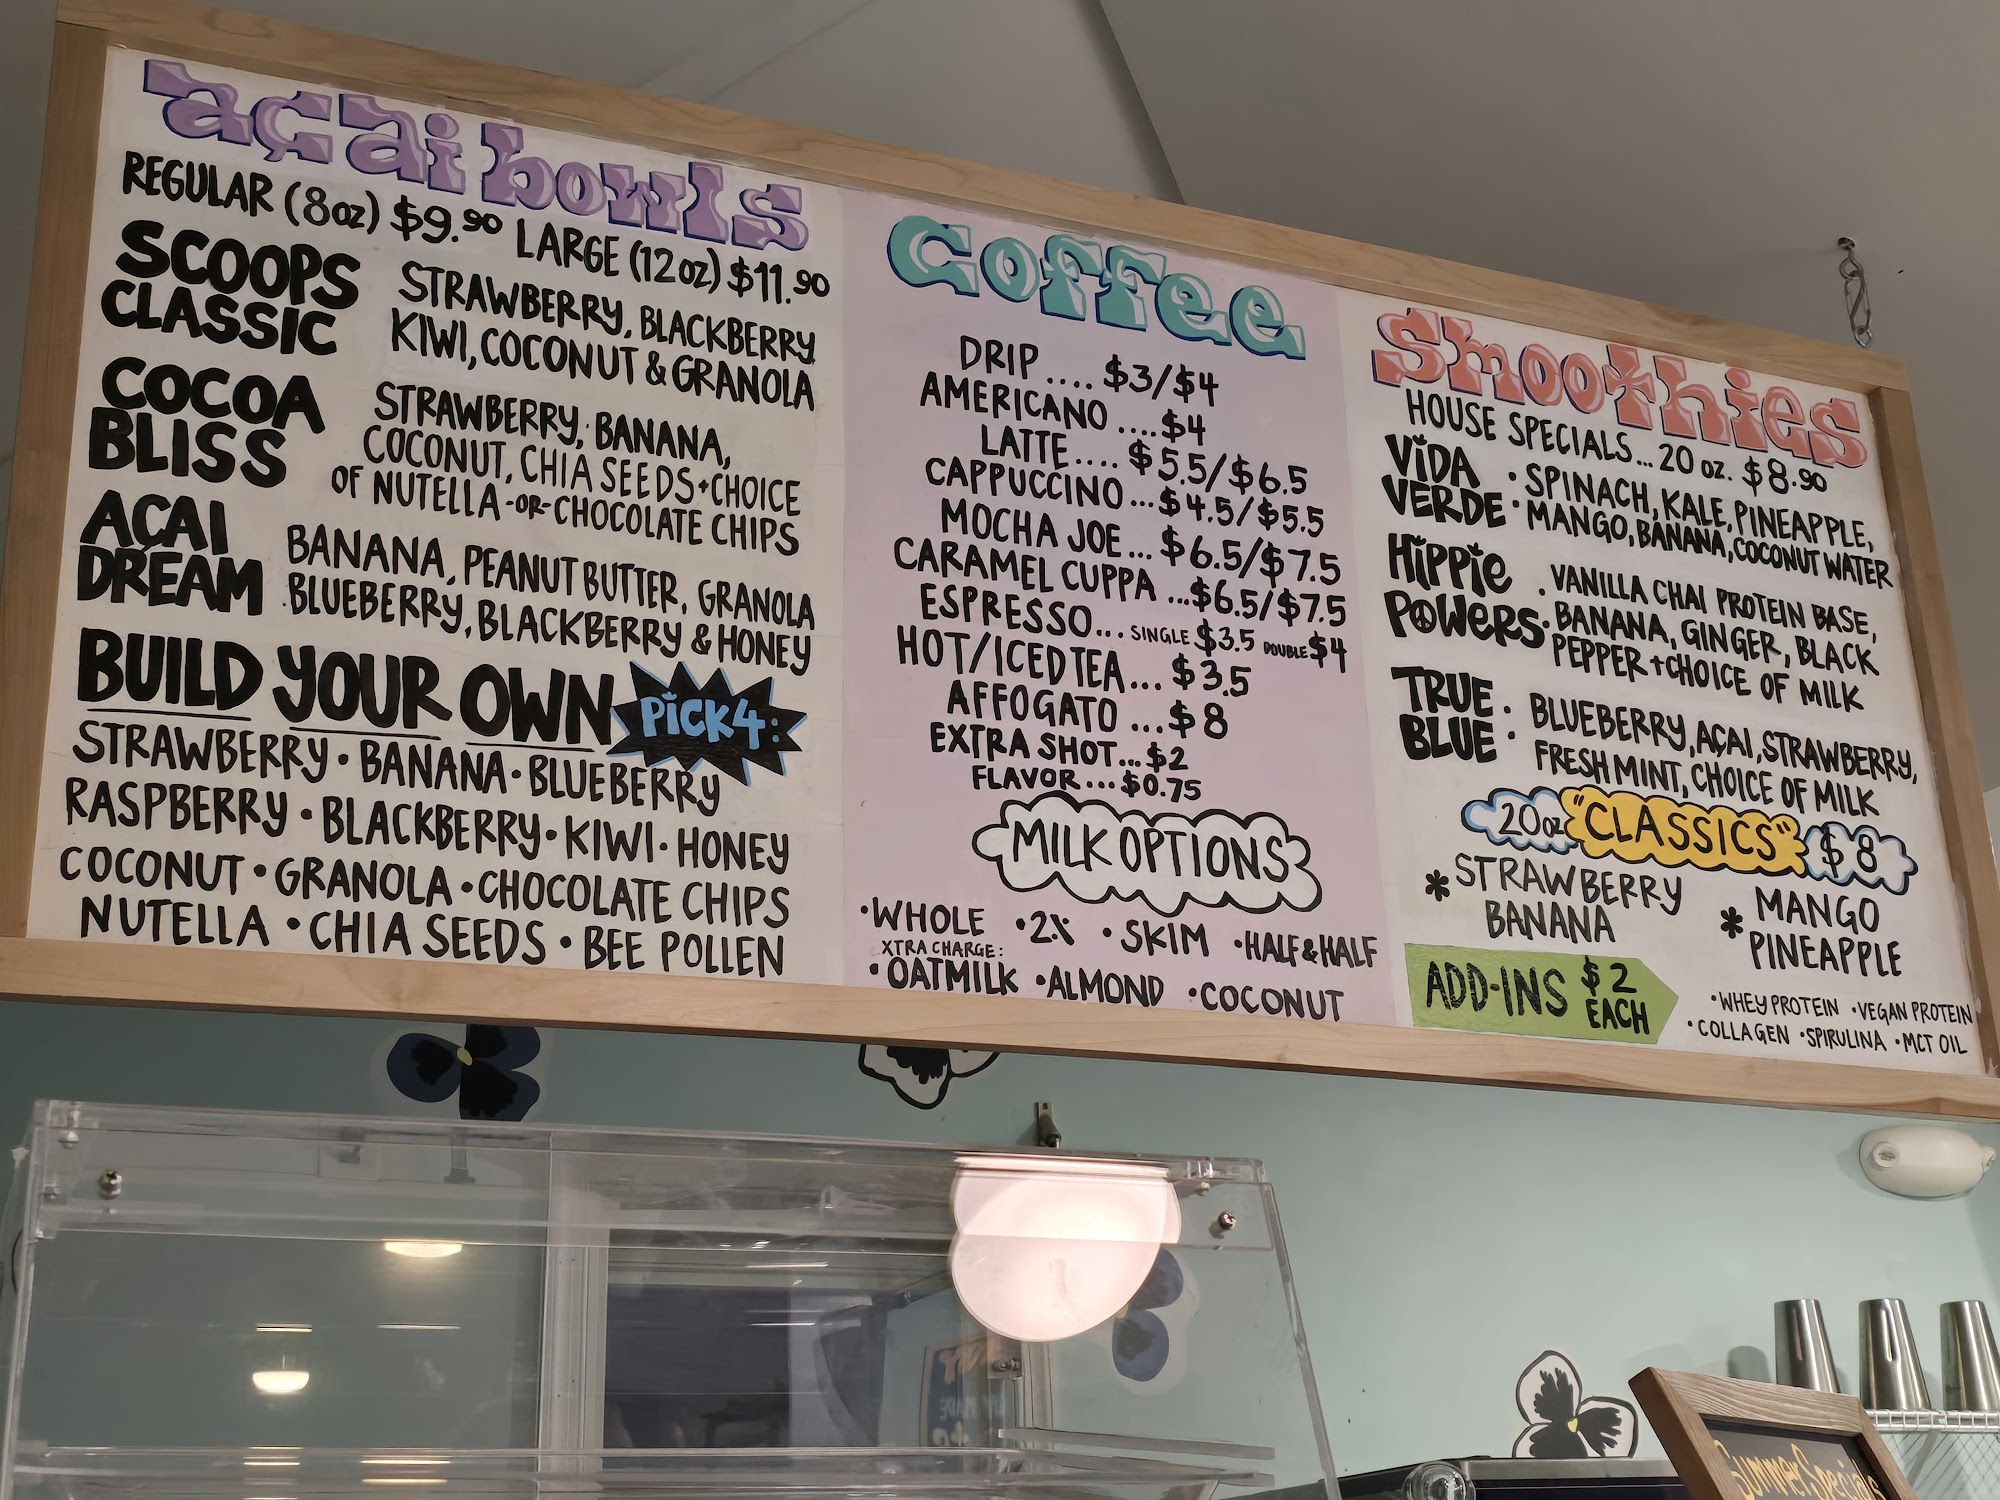 açai bowls
REGULAR (8oz) $9.90 LARGE (12oz) $11.90
SCOOPS CLASSIC
STRAWBERRY, BLACKBERRY
KIWI, COCONUT & GRANOLA
COCOA BLISS
STRAWBERRY, BANANA,
COCONUT, CHIA SEEDS + CHOICE
OF NUTELLA -OR- CHOCOLATE CHIPS
AÇAI DREAM
BANANA, PEANUT BUTTER, GRANOLA
BLUEBERRY, BLACKBERRY & HONEY
BUILD YOUR OWN PiCK 4:
STRAWBERRY · BANANA · BLUEBERRY
RASPBERRY · BLACKBERRY · KIWI · HONEY
COCONUT · GRANOLA · CHOCOLATE CHIPS
NUTELLA · CHIA SEEDS · BEE POLLEN
coffee
DRIP .... $3/$4
AMERICANO .... $4
LATTE .... $5.5/$6.5
CAPPUCCINO ... $4.5/$5.5
MOCHA JOE ... $6.5/$7.5
CARAMEL CUPPA ... $6.5/$7.5
ESPRESSO ... SINGLE $3.5 DOUBLE $4
HOT/ICED TEA ... $3.5
AFFOGATO ... $8
EXTRA SHOT ... $2
FLAVOR ... $0.75
MILK OPTIONS
·WHOLE ·2% ·SKIM ·HALF & HALF
XTRA CHARGE:
·OATMILK ·ALMOND ·COCONUT
Smoothies
HOUSE SPECIALS ... 20 oz. $8.90
ViDA VERDE
· SPINACH, KALE, PINEAPPLE,
· MANGO, BANANA, COCONUT WATER
HiPPie POWeRS
· VANILLA CHAI PROTEIN BASE,
· BANANA, GINGER, BLACK
PEPPER + CHOICE OF MILK
TRUE BLUE
· BLUEBERRY, AÇAI, STRAWBERRY,
· FRESH MINT, CHOICE OF MILK
20oz "CLASSICS" $8
* STRAWBERRY BANANA
* MANGO PINEAPPLE
ADD-INS $2 EACH
·WHEY PROTEIN ·VEGAN PROTEIN
·COLLAGEN ·SPIRULINA ·MCT OIL
Summer Specials